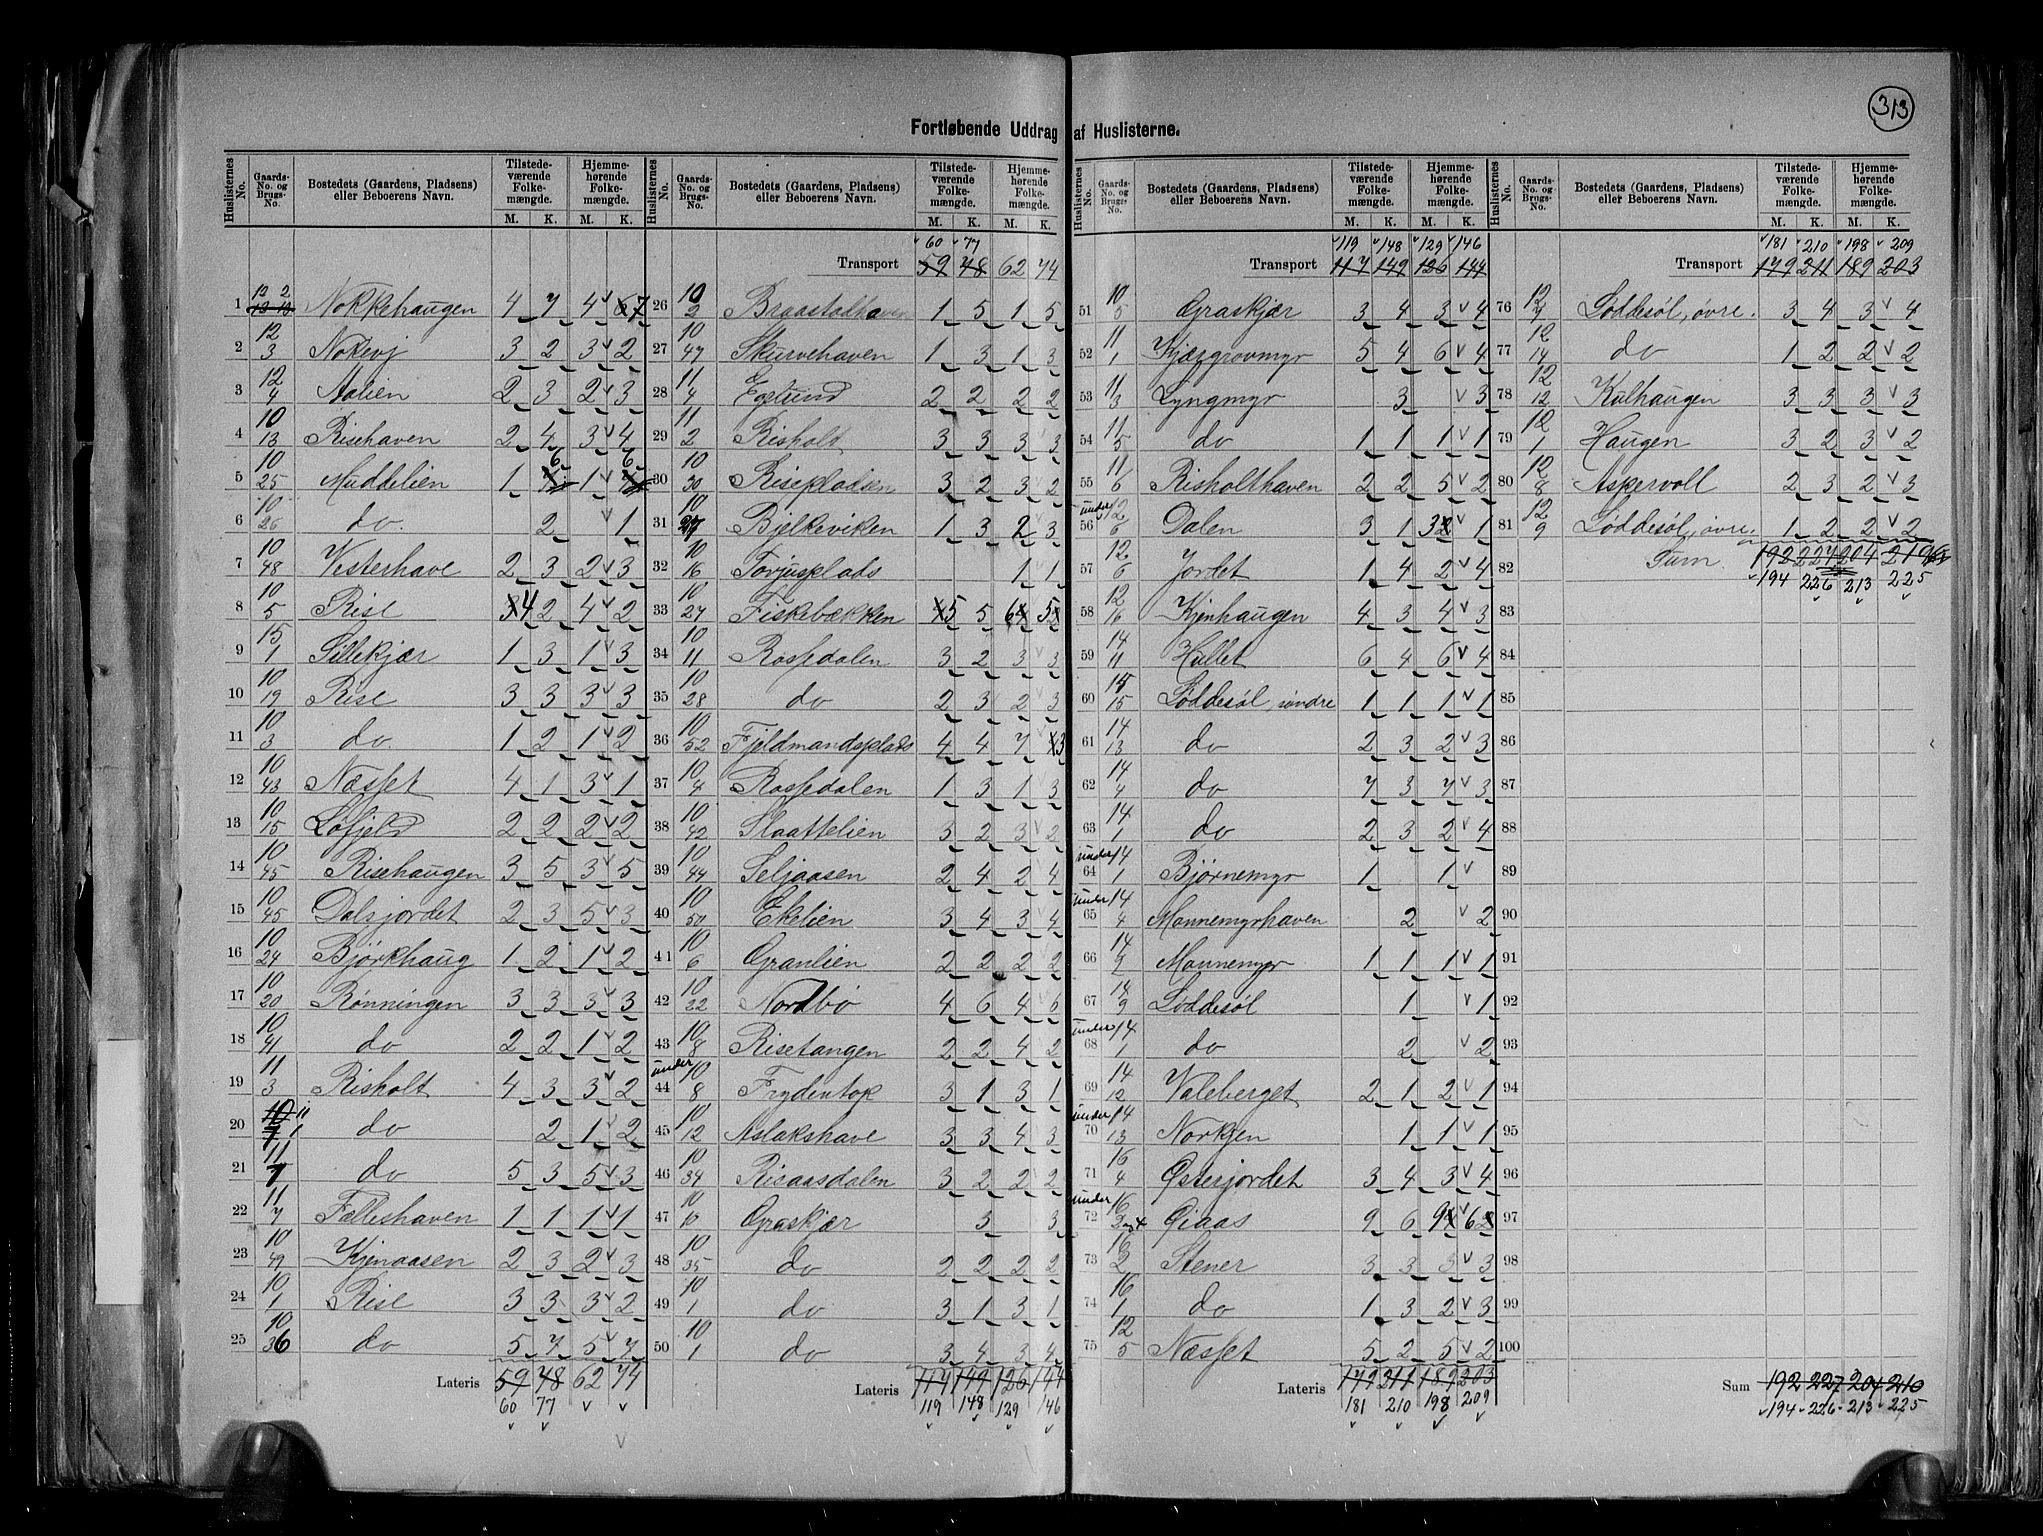 313
Fortløbende Uddrag af Huslisterne.
Huslisternes No. Gaards-No. og Brugs-No. Bostedets (Gaardens, Pladsens) eller Beboerens Navn. Tilstedeværende Folkemængde. M. K. Hjemmehørende Folkemængde. M. K.
1 12 2 Nokkehaugen 4 7 4 7
2 12 3 Nokevj 3 2 3 2
3 12 4 Aalien 2 3 2 3
4 10 13 Risehaven 2 4 3 4
5 10 25 Muddelien 1 6 1 6
6 10 26 do. 2 1
7 10 48 Vesterhave 2 3 2 3
8 10 5 Rise 4 2 4 2
9 15 1 Sillekjær 1 3 1 3
10 10 19 Rise 3 3 3 3
11 10 3 do. 1 2 1 2
12 10 43 Næsset 4 1 3 1
13 10 15 Lofjeld 2 2 2 2
14 10 45 Risehaugen 3 5 3 5
15 10 45 Dalsjordet 2 3 5 3
16 10 24 Bjørkhaug 1 2 1 2
17 10 20 Rønningen 3 3 3 3
18 10 41 do 2 2 1 2
19 11 3 Risholt 4 3 3 2
20 11 1 do 2 1 2
21 11 7 do 5 3 5 3
22 11 7 Fælleshaven 1 1 1 1
23 10 49 Kjenaasen 2 3 2 3
24 10 1 Rise 3 3 3 2
25 10 36 do 5 7 5 7
Lateris 59 78 62 74
60 77
60 77
Transport 59 78 62 74
26 10 2 Braastadhaven 1 5 1 5
27 10 47 Skurvehaven 1 3 1 3
28 11 4 Egelund 2 2 2 2
29 11 2 Risholt 3 3 3 3
30 10 30 Risepladsen 3 2 3 2
31 10 27 Bjelkeviken 1 3 2 3
32 10 16 Torjusplads 1 1
33 10 27 Fiskebækken 5 5 6 5
34 10 11 Rossedalen 3 2 3 3
35 10 28 do 2 3 2 3
36 10 52 Fjeldmandsplads 4 4 7 3
37 10 4 Rossedalen 1 3 1 3
38 10 42 Slaattelien 3 2 3 2
39 10 44 Seljaasen 2 4 2 4
40 10 50 Ekelien 3 4 3 4
41 10 6 Granlien 2 2 2 2
42 10 22 Nordbø 4 6 4 6
43 10 8 Risetangen 2 2 4 2
44 under 10 8 Frydentop 3 1 3 1
45 10 12 Aslakshave 3 3 4 3
46 10 34 Risaasdalen 3 2 2 2
47 10 6 Graskjær 3 3
48 10 35 do 2 2 2 2
49 10 1 do 3 1 3 1
50 10 1 do 3 4 3 4
Lateris 117 149 126 144
119 148 129 146
119 148 129 146
Transport 117 149 126 144
51 10 5 Graskjær 3 4 3 4
52 11 1 Kjærgrovmyr 5 4 6 4
53 11 3 Lyngmyr 3 3
54 11 5 do 1 1 1 1
55 11 6 Risholthaven 2 2 5 2
56 under 12 6 Dalen 3 1 3 1
57 12 6 Jordet 1 4 2 4
58 12 16 Kjenhaugen 4 3 4 3
59 14 11 Hullet 6 4 6 4
60 14 15 Løddesøl søndre 1 1 1 1
61 14 13 do 2 3 2 3
62 14 4 do 7 3 7 3
63 14 1 do 2 3 2 4
64 under 14 1 Bjørnemyr 1 1
65 under 14 4 Monnemyrhaven 2 2
66 14 7 Monnemyr 1 1 1 1
67 14 9 Løddesøl 1 1
68 under 14 1 do 2 2
69 14 12 Valeberget 2 1 2 1
70 under 14 13 Norkjen 1 1 1
71 16 4 Østerjordet 3 4 3 4
72 under 16 2 Qiaas 9 6 9 6
73 16 2 Stener 3 3 3 3
74 16 1 do 1 3 2 3
75 12 5 Næsset 5 2 5 2
Lateris 179 211 189 203
181 210 198 209
181 210 198 209
Transport 179 211 189 203
76 12 7 Løddesøl, øvre. 3 4 3 4
77 12 14 do 1 2 2 2
78 12 12 Kulhaugen 3 3 3 3
79 12 1 Haugen 3 2 3 2
80 12 8 Aspervoll 2 3 2 3
81 12 9 Løddesøl, øvre 1 2 2 2
82 Sum 192 227 204 219
194 226 213 225
83
84
85
86
87
88
89
90
91
92
93
94
95
96
97
98
99
100
Sum 192 227 204 210
194 226 213 225